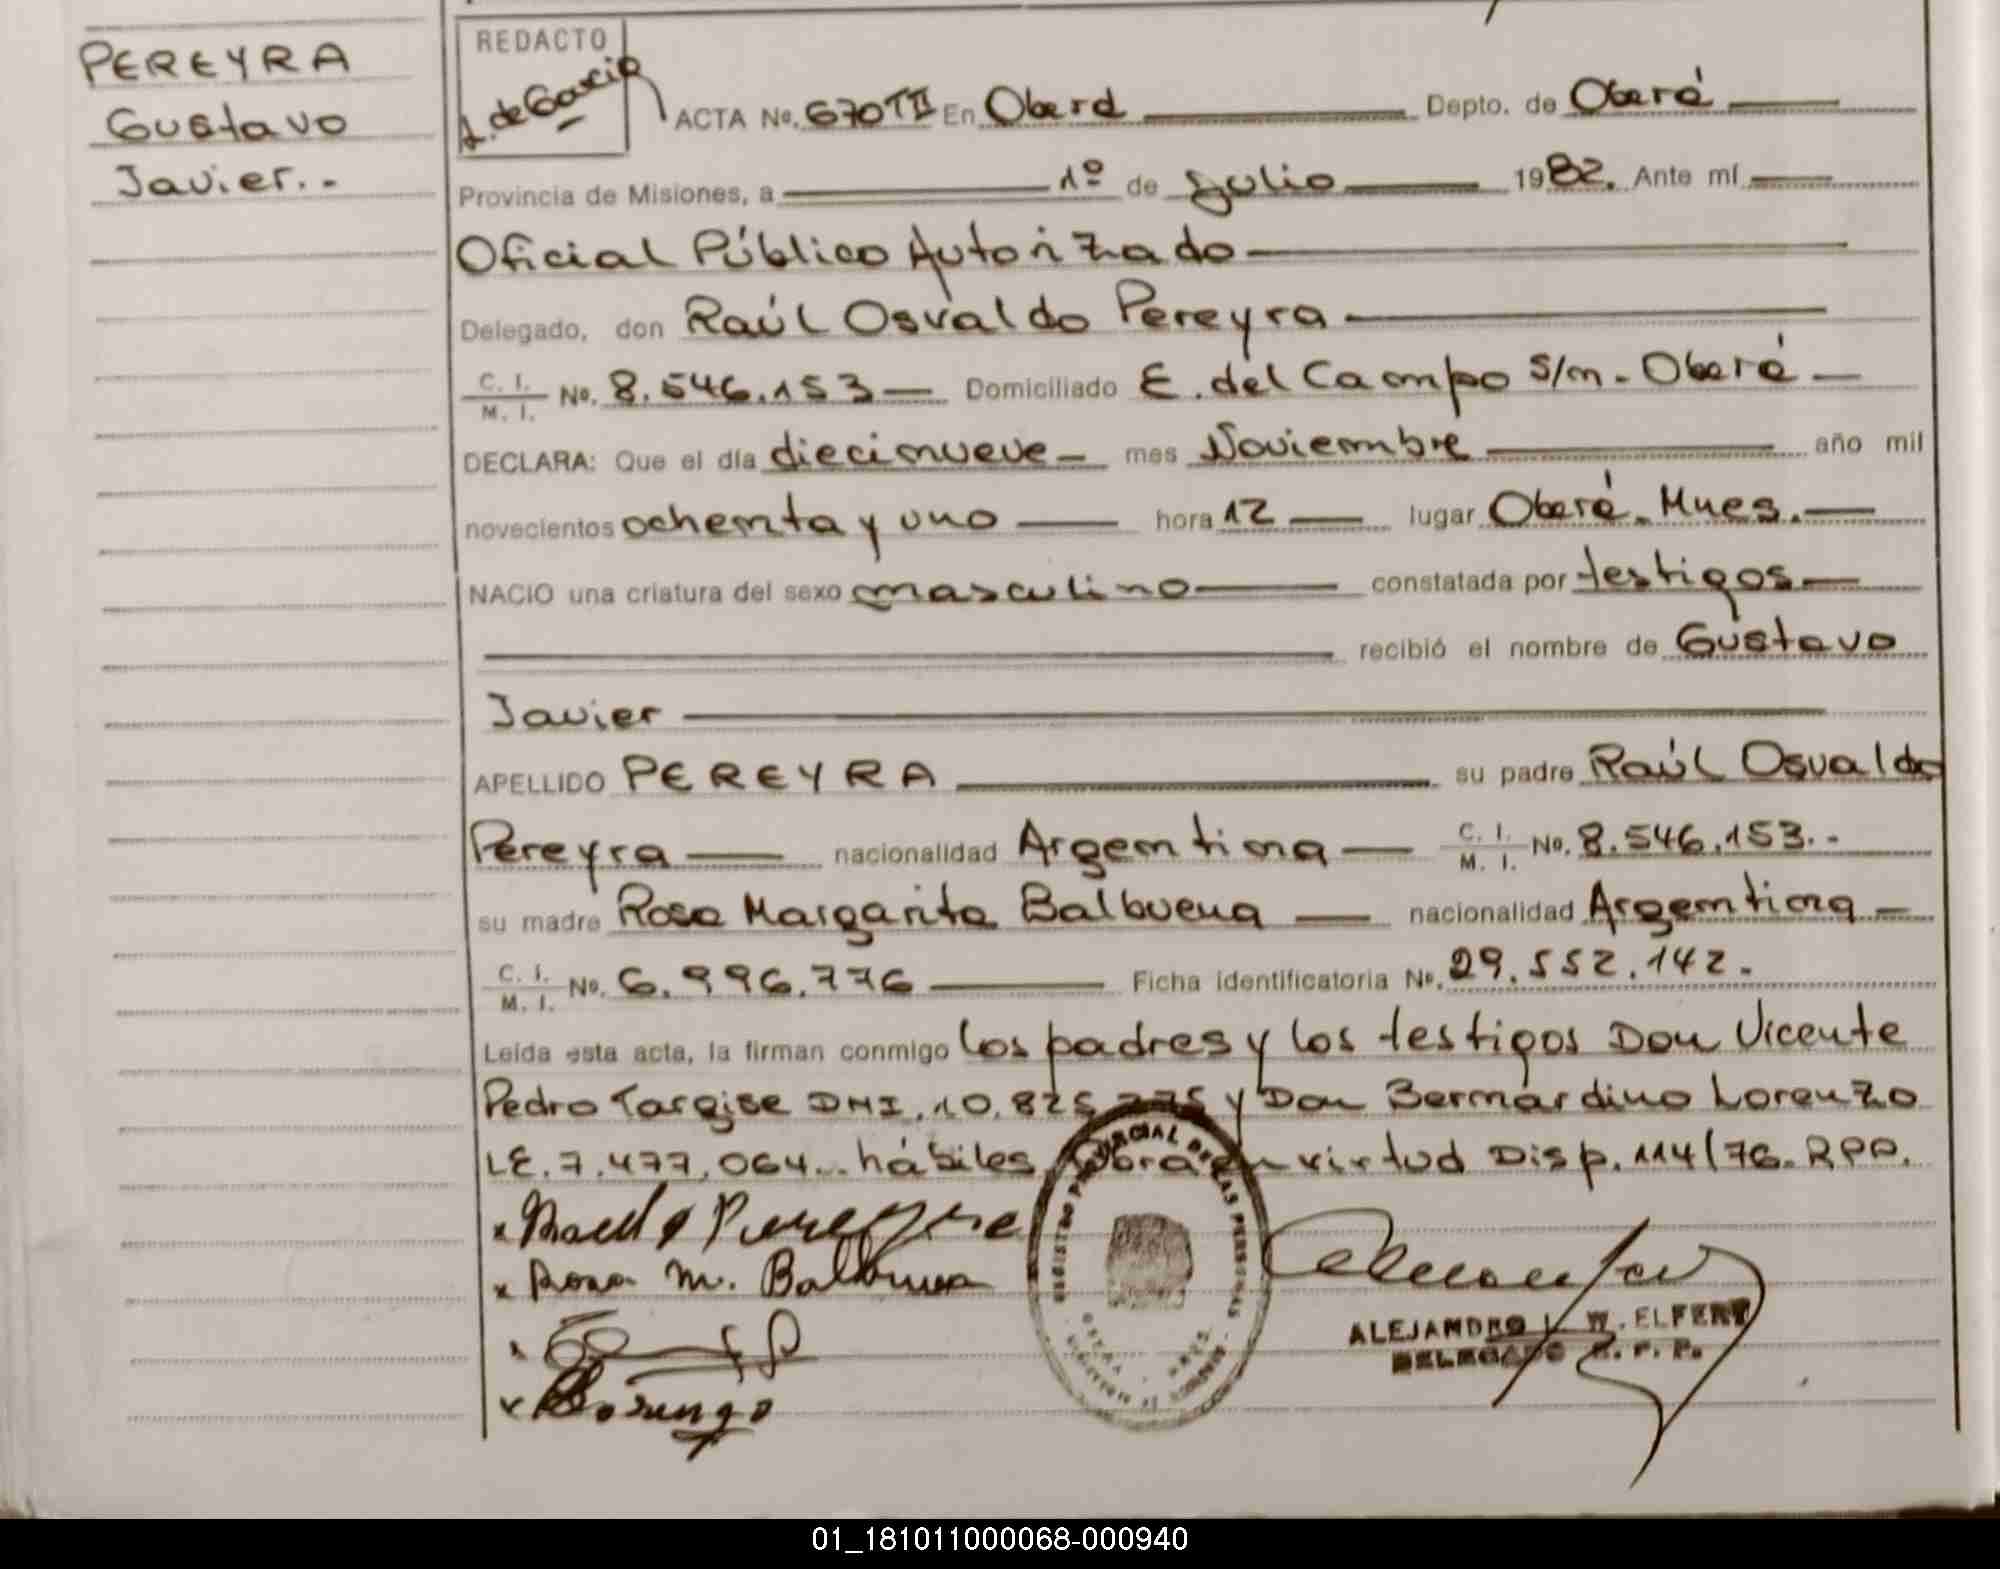 PEREYRA
Gustavo
Javier.-
REDACTO
L. de Garcia
ACTA No. 670TII En Oberá Depto. de Oberá
Provincia de Misiones, a 1º de Julio 1982. Ante mí
Oficial Público Autorizado
Delegado, don Raúl Osvaldo Pereyra
C. I. / M. I. No. 8.546.153 Domiciliado E. del Campo S/m - Oberá
DECLARA: Que el día diecinueve mes Noviembre año mil
novecientos ochenta y uno hora 12 lugar Oberá. Mnes.
NACIO una criatura del sexo masculino constatada por testigos
recibió el nombre de Gustavo
Javier
APELLIDO PEREYRA su padre Raúl Osvaldo
Pereyra nacionalidad Argentina C. I. / M. I. No. 8.546.153.-
su madre Rosa Margarita Balbuena nacionalidad Argentina
C. I. / M. I. No. 6.996.776 Ficha identificatoria No. 29.552.142.-
Leída esta acta, la firman conmigo los padres y los testigos Don Vicente
Pedro DNI. 10.825.275 y Don Bernardino Lorenzo
LE. 7.477.064... hábiles virtud Disp. 114/76. RPP.
Pereyra
Rosa M. Balbuena
REGISTRO PROVINCIAL DE LAS PERSONAS
ALEJANDRO W. ELFERT
DELEGADO R. P. P.
01_181011000068-000940